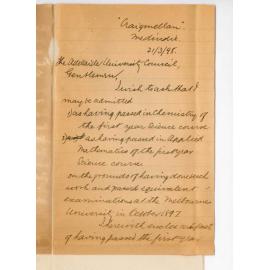 "Craigmellan"
Medindie.
21/3/98.
The Adelaide University Council,
Gentlemen,
I wish to ask that I
may be admitted
as having passed in chemistry of
the first year Science course
as having passed in Applied
Mathematics of the first year
Science course
on the grounds of having done such
work and passed equivalent
examinations at the Melbourne
University in October 1897
I herewith enclose
of having passed the first year